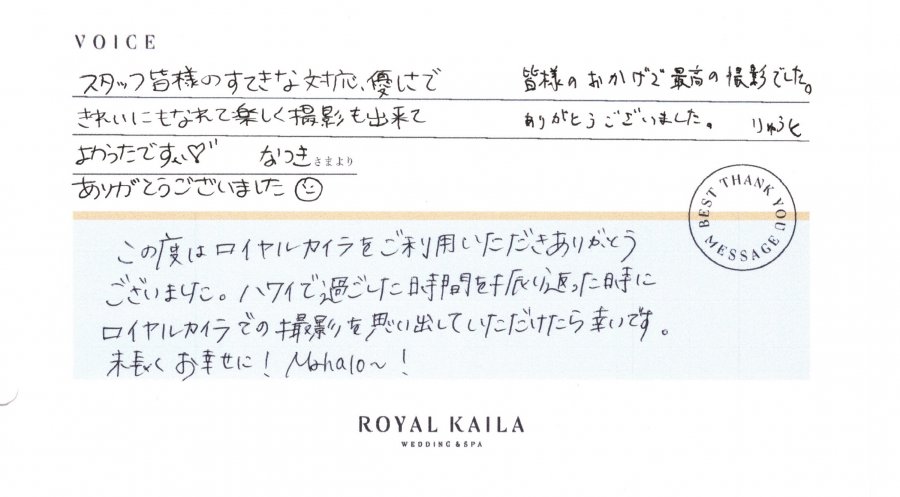 VOICE
スタッフ皆様のすてきな対応、優しさで
きれいにもなれて楽しく撮影も出来て
よかったですぃ♡
なつき さまより
ありがとうございました☺
皆様のおかげで最高の撮影でした。
ありがとうございました。 りゅうと
BEST THANK YOU MESSAGE
この度はロイヤルカイラをご利用いただきありがとう
ございました。ハワイで過ごした時間を振り返った時に
ロイヤルカイラでの撮影を思い出していただけたら幸いです。
末長くお幸せに！ Mahalo～！
ROYAL KAILA
WEDDING & SPA